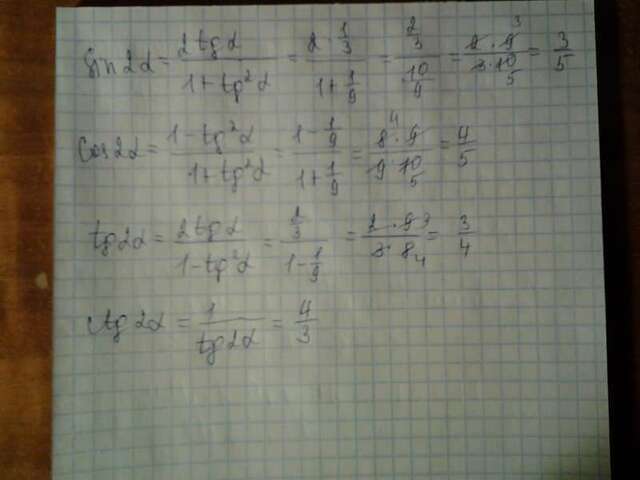 sin2α = 2tgα / 1+tg²α = 2·1/3 / 1+1/9 = 2/3 / 10/9 = 2·9 3 / 3·10 5 = 3/5
cos2α = 1-tg²α / 1+tg²α = 1-1/9 / 1+1/9 = 8 4·9 / 9·10 5 = 4/5
tg2α = 2tgα / 1-tg²α = 2/3 / 1-1/9 = 2·9 3 / 3·8 4 = 3/4
ctg2α = 1 / tg2α = 4/3